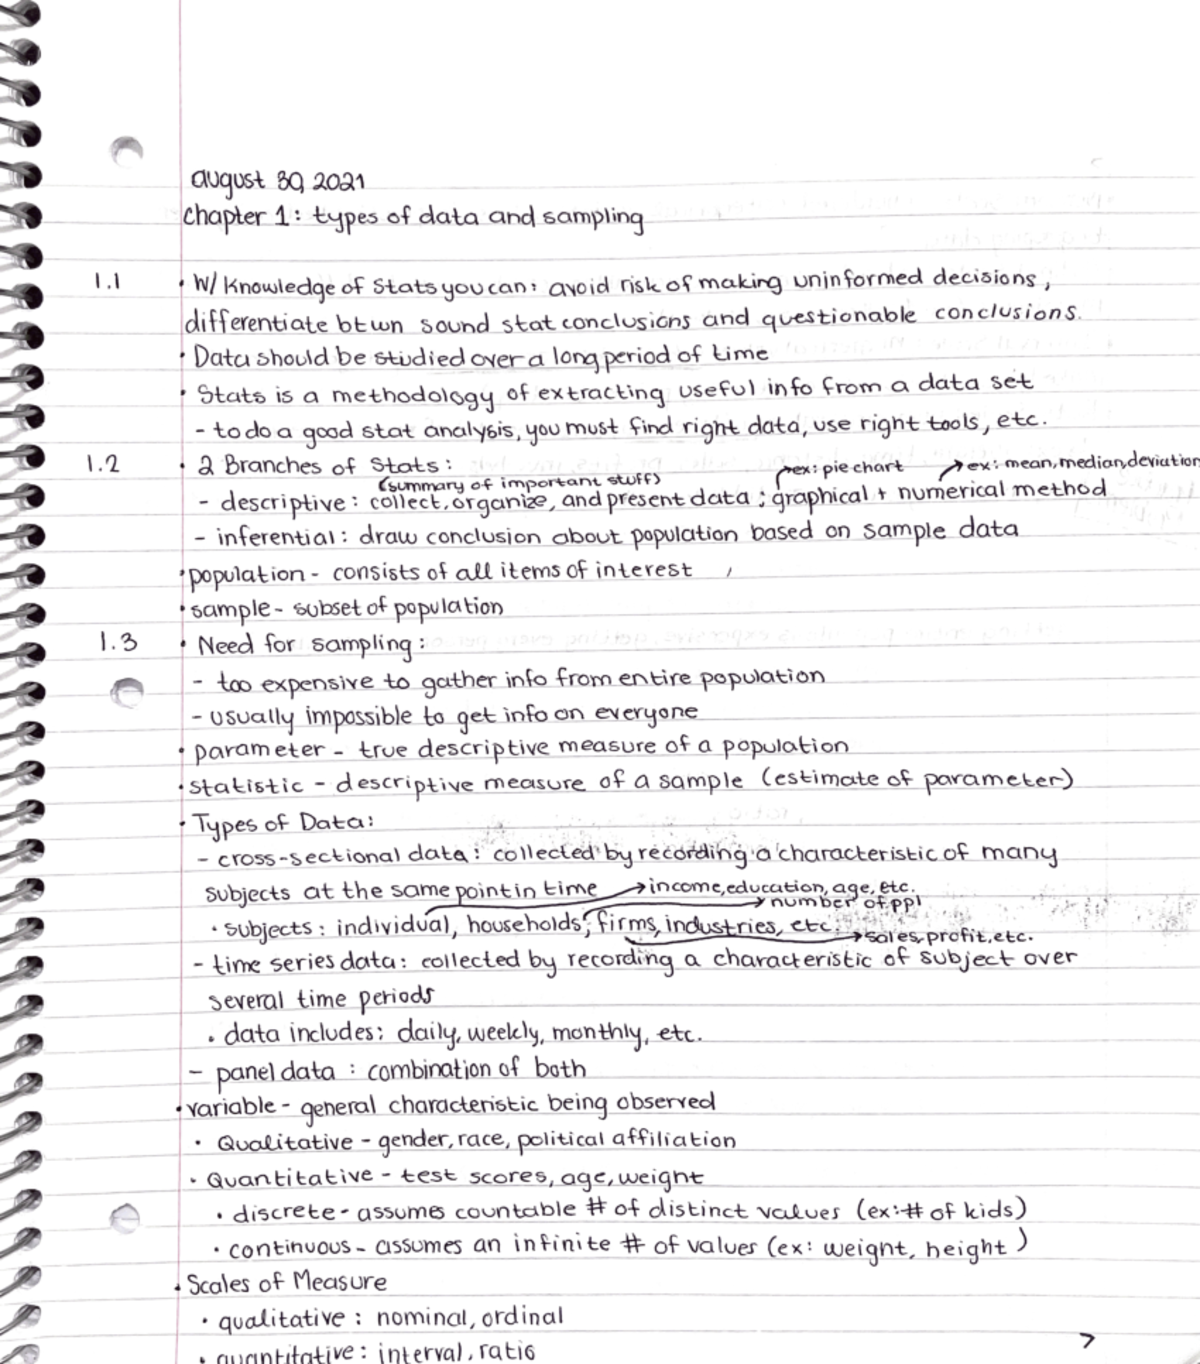 august 30, 2021
chapter 1: types of data and sampling
1.1 • W/ knowledge of stats you can: avoid risk of making uninformed decisions,
differentiate btwn sound stat conclusions and questionable conclusions.
• Data should be studied over a long period of time
• Stats is a methodology of extracting useful info from a data set
- to do a good stat analysis, you must find right data, use right tools, etc.
1.2 • 2 Branches of Stats:
→ex: pie chart →ex: mean, median, deviation
(summary of important stuff)
- descriptive: collect, organize, and present data; graphical + numerical method
- inferential: draw conclusion about population based on sample data
• population - consists of all items of interest
• sample - subset of population
1.3 • Need for sampling:
- too expensive to gather info from entire population
- usually impossible to get info on everyone
• parameter - true descriptive measure of a population
• statistic - descriptive measure of a sample (estimate of parameter)
• Types of Data:
- cross-sectional data: collected by recording a characteristic of many
subjects at the same point in time →income, education, age, etc.
→number of ppl
• subjects: individual, households, firms, industries, etc.
→sales, profit, etc.
- time series data: collected by recording a characteristic of subject over
several time periods
• data includes: daily, weekly, monthly, etc.
- panel data: combination of both
• variable - general characteristic being observed
• Qualitative - gender, race, political affiliation
• Quantitative - test scores, age, weight
• discrete - assumes countable # of distinct values (ex: # of kids)
• continuous - assumes an infinite # of values (ex: weight, height)
• Scales of Measure
• qualitative: nominal, ordinal
• quantitative: interval, ratio